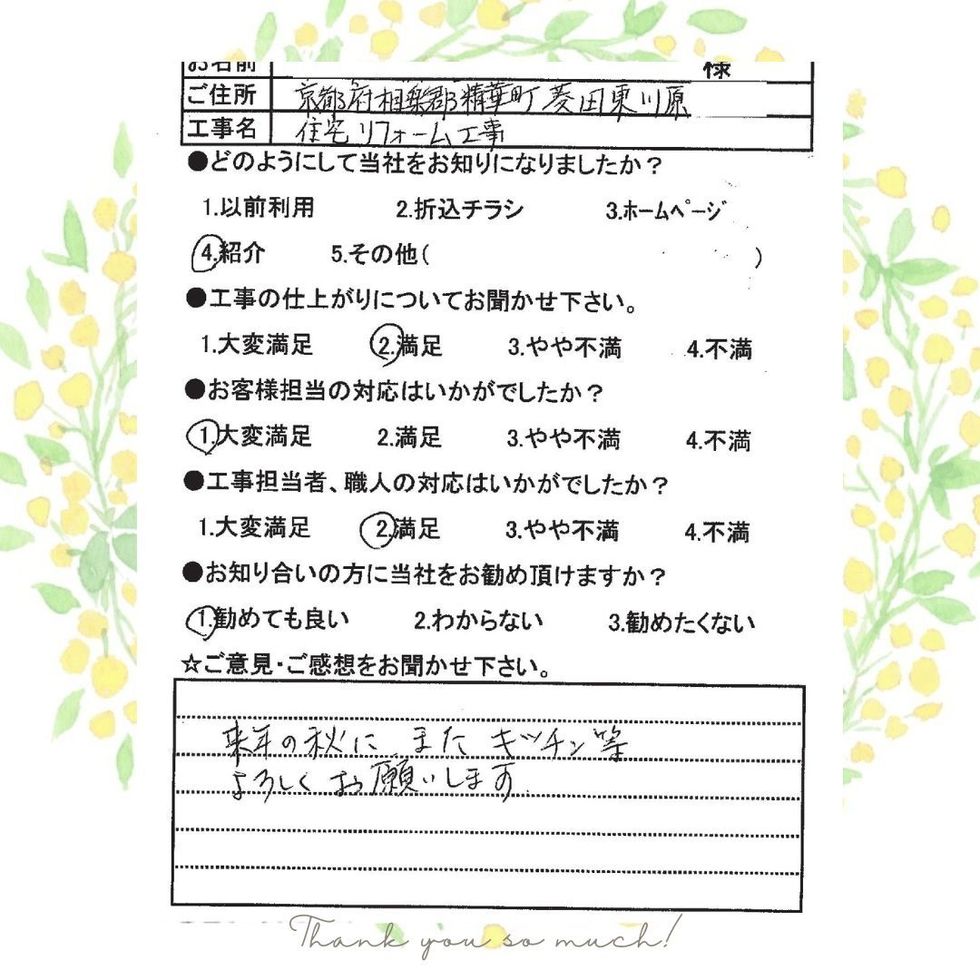 お名前 様
ご住所 京都府相楽郡精華町菱田東川原
工事名 住宅リフォーム工事
●どのようにして当社をお知りになりましたか？
1.以前利用 2.折込チラシ 3.ホームページ
4.紹介 5.その他( )
●工事の仕上がりについてお聞かせ下さい。
1.大変満足 2.満足 3.やや不満 4.不満
●お客様担当の対応はいかがでしたか？
1.大変満足 2.満足 3.やや不満 4.不満
●工事担当者、職人の対応はいかがでしたか？
1.大変満足 2.満足 3.やや不満 4.不満
●お知り合いの方に当社をお勧め頂けますか？
1.勧めても良い 2.わからない 3.勧めたくない
☆ご意見・ご感想をお聞かせ下さい。
来年の秋に また キッチン等
よろしく お願いします
Thank you so much!